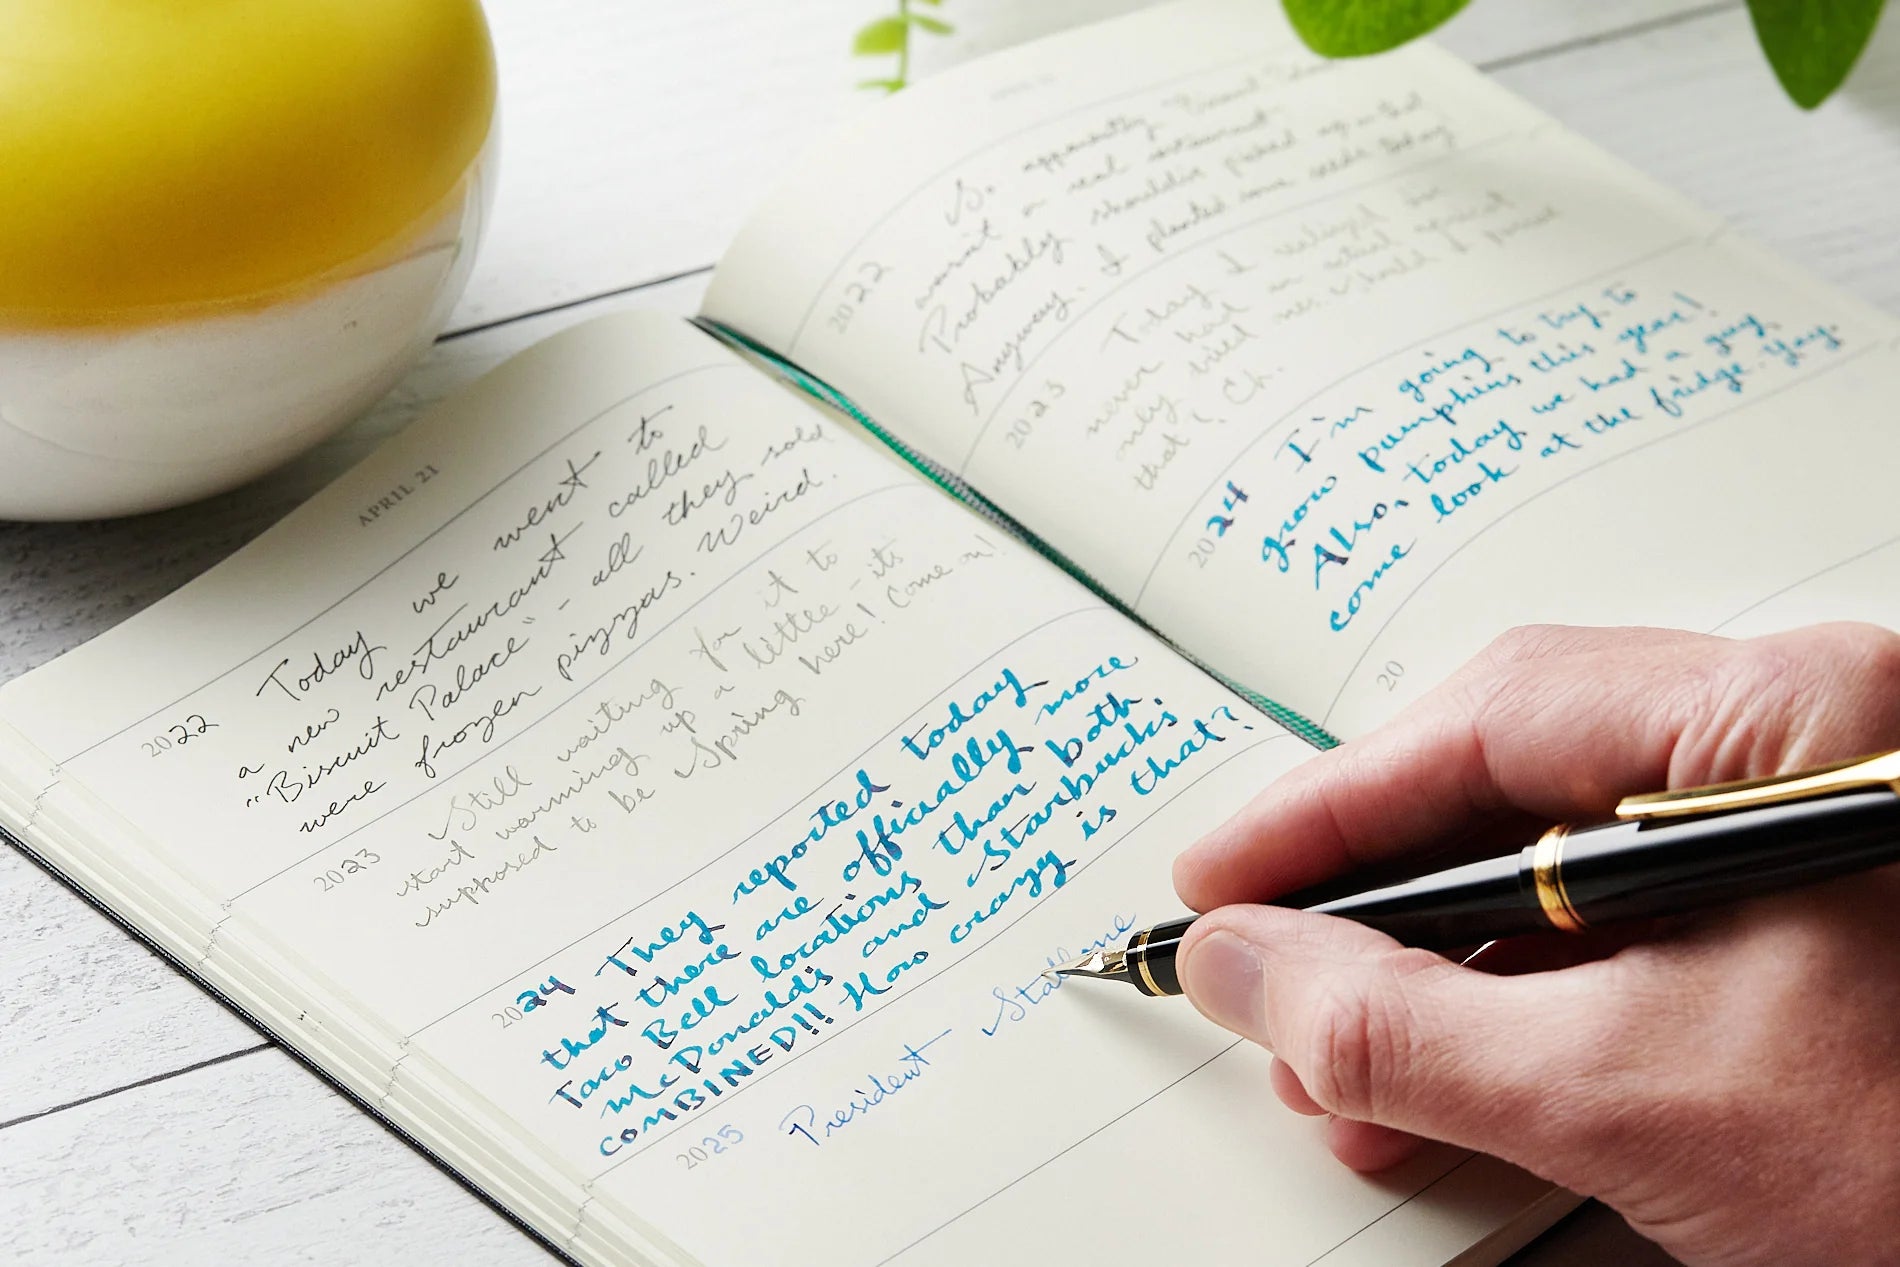 APRIL 21
2022 Today we went to
a new restaurant called
"Biscuit Palace" - all they sold
were frozen pizzas. Weird.
2023 Still waiting for it to
start warming up a little - its
supposed to be Spring here! Come on!
2024 They reported today
that there are officially more
Taco Bell locations than both
McDonald's and Starbucks
COMBINED!! How crazy is that?
2025 President Stallone
2022 So apparently Biscuit
wasnt a real restaurant.
Probably shoulda picked up on that
Anyway. I planted some seeds today
2023 Today I realized Ive
never had an actual apricot
only dried ones. Should I pursue
that? Eh.
2024 I'm going to try to
grow pumpkins this year!
Also, today we had a guy
come look at the fridge. Yay.
20